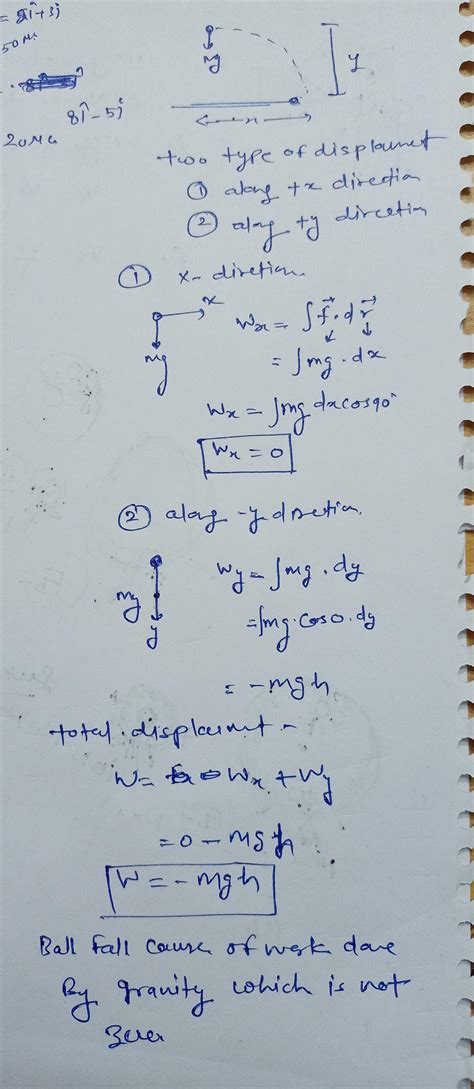 = 8î+3ĵ
50 M
mg
y
8î-5ĵ
x
two type of displaument
① along +x direction
② along +y dircetin
① x- diretion.
x
mg
Wx = ∫f⃗.dr⃗
= ∫mg.dx
Wx = ∫mg dx cos90°
Wx = 0
② along -y dirsetion.
mg
y
Wy = ∫mg.dy
= ∫mg.cos0.dy
= -mgh
total displaiumt -
W = Wx + Wy
= 0 - mgh
W = -mgh
Ball fall cause of work done
By gravity which is not
zero